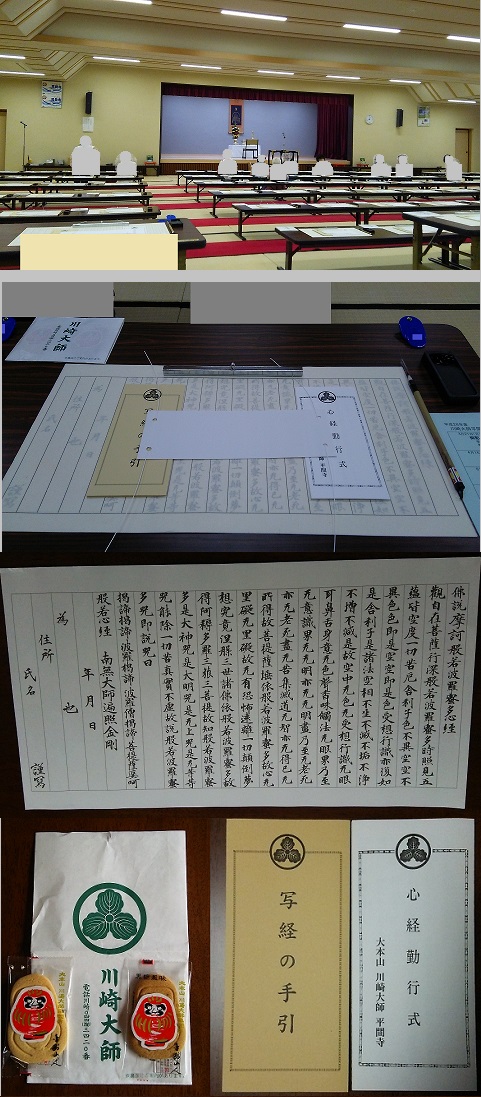 川崎大師
写経の手引
心経勤行式
佛説摩訶般若波羅蜜多心経
觀自在菩薩行深般若波羅蜜多時照見五
蘊皆空度一切苦厄舎利子色不異空空不
異色色即是空空即是色受想行識亦復如
是舎利子是諸法空相不生不滅不垢不浄
不増不減是故空中无色无受想行識无眼
耳鼻舌身意无色聲香味觸法无眼界乃至
无意識界无无明亦无无明盡乃至无老死
亦无老死盡无苦集滅道无智亦无得已无
所得故菩提薩埵依般若波羅蜜多故心无
罣礙无罣礙故无有恐怖遠離一切顛倒夢
想究竟涅槃三世諸佛依般若波羅蜜多故
得阿耨多羅三藐三菩提故知般若波羅蜜
多是大神咒是大明咒是无上咒是无等等
咒能除一切苦真實不虚故説般若波羅蜜
多咒即説咒曰
掲諦掲諦 波羅掲諦 波羅僧掲諦 菩提薩婆訶
般若心経 南無大師遍照金剛
年 月 日
為 也
住所
氏名 謹寫
川崎大師
写経の手引
心経勤行式
大本山 川崎大師 平間寺